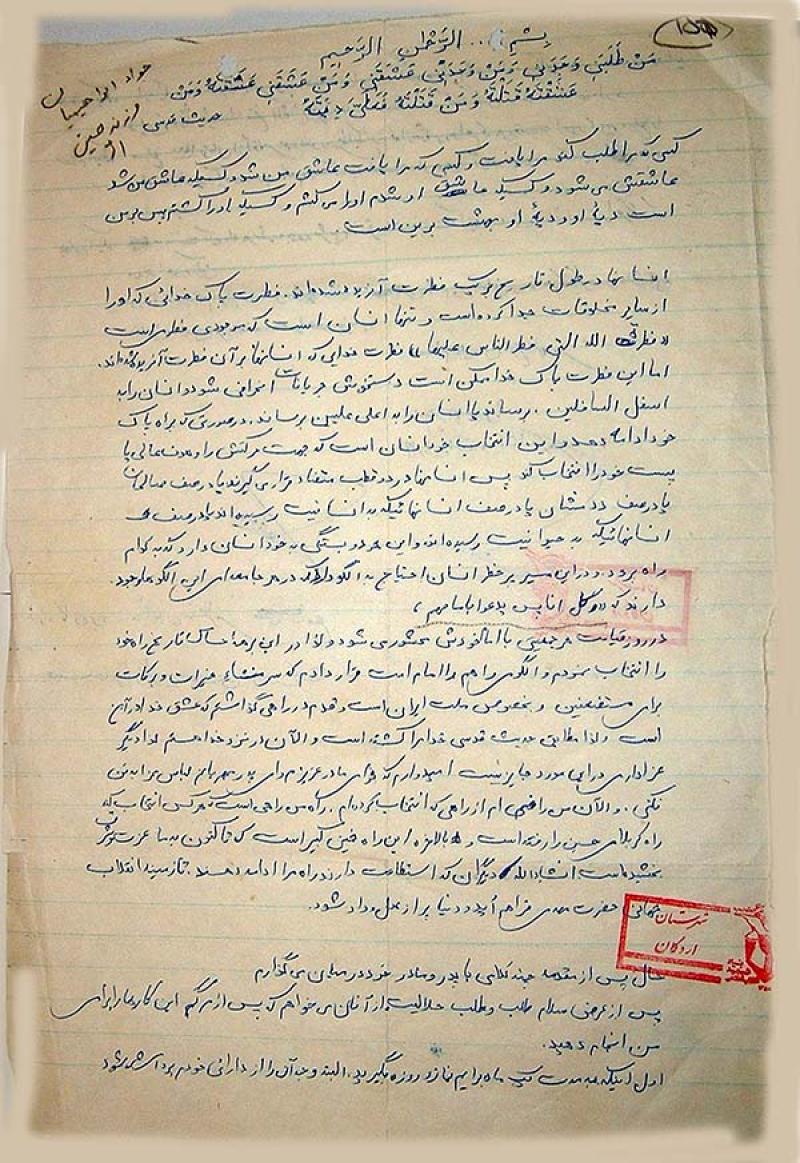 بسم ا... الرَّحمنِ الرَّحیمِ
مَنْ طَلَبَنِی وَجَدَنِی وَمَنْ وَجَدَنِی عَشَقَنِی وَمَنْ عَشَقَنِی عَشَقْتُهُ وَمَنْ
عَشَقْتُهُ قَتَلْتُهُ وَمَنْ قَتَلْتُهُ فَعَلَیَّ دِیَتُهُ
حدیث قدسی
جواد ابراهیمیان
فرزند حسین
کسی که مرا طلب کند مرا یافت و کسی که مرا یافت عاشق من شد و کسیکه عاشق من شد
عاشقش می شود و کسیکه عاشق او شدم او را می کشم و کسیکه او را کشتم پس بر من
است دیهٔ او و دیهٔ او بهشت برین است.
انسانها در طول تاریخ بر یک فطرت آفریده شده اند. فطرت پاک خدائی که او را
از سایر مخلوقات جدا کرده است و تنها انسان است که موجودی فطری است
«فطرت الله التی فطر الناس علیها» فطرت خدایی که انسانها بر آن فطرت آفریده شده اند.
اما این فطرت پاک خدا ممکن است دستخوش جریانات انحرافی شود و انسان را به
اسفل السافلین برساند یا انسان را به اعلی علیین برساند. در صورتی که راه پاک
خود ادامه دهد و این انتخاب خود انسان است که جهت حرکتش را و هدف عالی یا
پست خود را انتخاب کند پس انسانها در دو قطب متضاد قرار می گیرند یا در صف ظالمان
یا در صف دوستان یا در صف انسانهائیکه به انسانیت رسیده اند یا در صف
انسانهائیکه به حیوانیت رسیده اند و این هر دو بستگی به خود انسان دارد که به کدام
راه برود. و در این مسیر پر خطر انسان احتیاج به الگو دارد که در هر جامعه ای این الگوها وجود
دارند که «و کل اناس یدعوا بامامهم»
در روز قیامت هر جمعیتی با امام خودش محشور می شود و لذا در این برهه حساس تاریخ راه خود
را انتخاب نمودم و الگوی راهم را امام امت قرار دادم که سر منشاء خیرات و برکات
برای مستضعفین و بخصوص ملت ایران است و قدم در راهی گذاشتم که عشق خدا در آن
است ولذا مطابق حدیث قدسی خدا مرا کشته است و الآن در نزد خدا هستم لذا دیگر
عزاداری در این مورد جایز نیست امیدوارم که توای مادر عزیزم و ای پدر مهربانم لباس عزا به تن
نکنی. و الآن من راضی ام از راهی که انتخاب کرده ام. راه من راهی است که هر کس انتخاب کند
راه کربلای حسین را رفته است و بالاخره این راه خمینی کبیر است که تا کنون به ما عزت و شرف
بخشیده است انشاءالله دیگران که استطاعت دارند راه مرا ادامه دهند. تا زمینه انقلاب
جهانی حضرت مهدی فراهم آید و دنیا پر از عدل و داد شود.
شهرستان
اردکان
حال پس از مقدمه چند کلامی با پدر و مادر خود در میان می گذارم
پس از عرض سلام و طلب حلالیت از آنان می خواهم که پس از مرگم این کارها را برای
من انجام دهید.
اول اینکه به مدت یک ماه برایم نماز و روزه بگیرید. البته وجه آن را از دارائی خودم برداشت شود